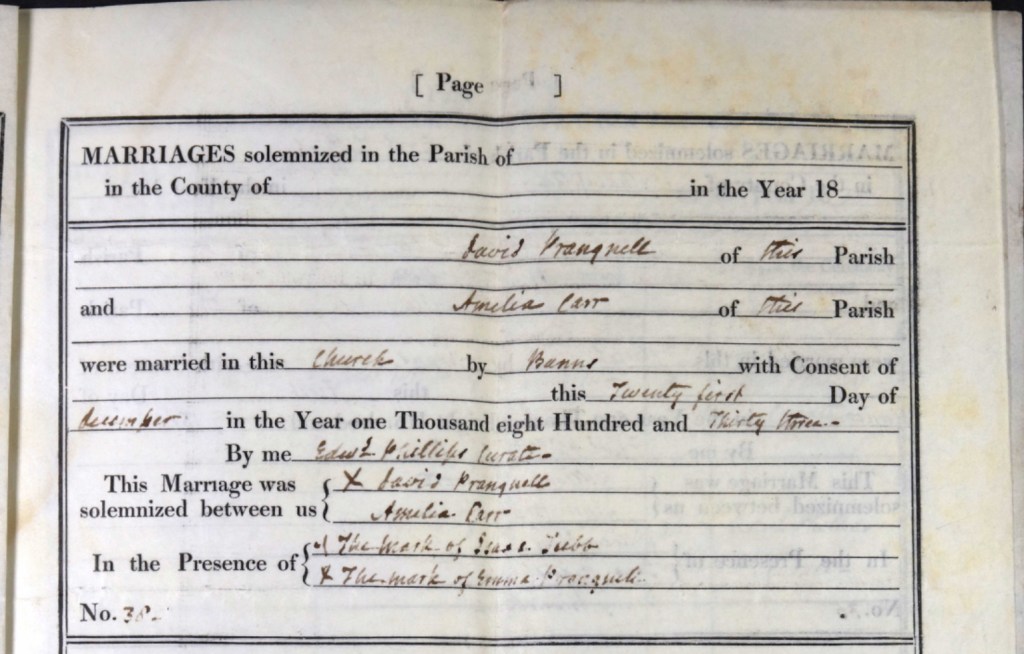 [ Page ]
MARRIAGES solemnized in the Parish of
in the County of in the Year 18
David Prangnell of this Parish
and Amelia Carr of this Parish
were married in this Church by Banns with Consent of
this Twenty first Day of
December in the Year one Thousand eight Hundred and Thirty three
By me Edwd Phillips Curate
This Marriage was solemnized between us { X David Prangnell
Amelia Carr
In the Presence of { X The mark of Isaac Tubb
X The mark of Emma Prangnell
No. 38.